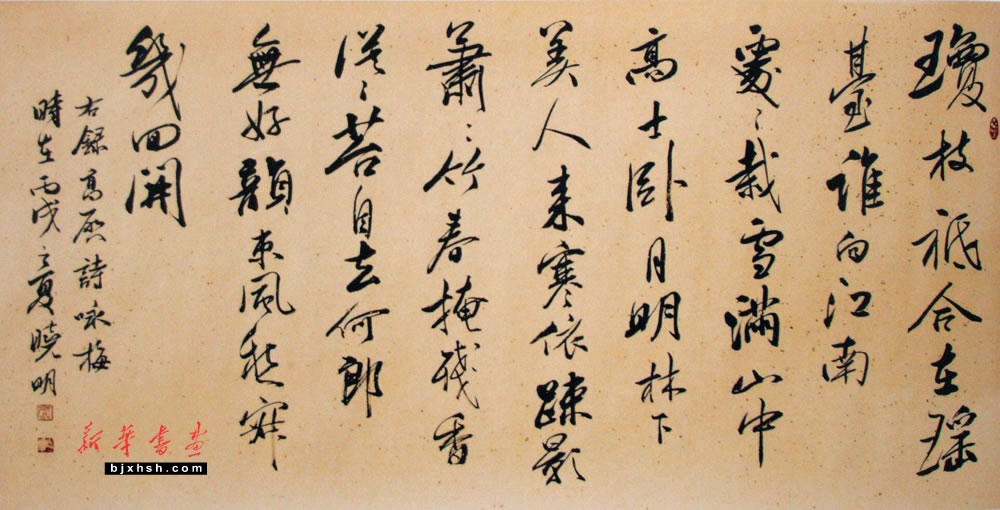 瓊枝祗合在瑤
臺誰向江南
處〻栽雪滿山中
高士卧月明林下
美人来寒依踈影
蕭〻竹春掩殘香
漠〻苔自去何郎
無好韻東風愁寂
幾回開
右録高啟詩咏梅
時在丙戌之夏曉明
新華書畫
bjxhsh.com